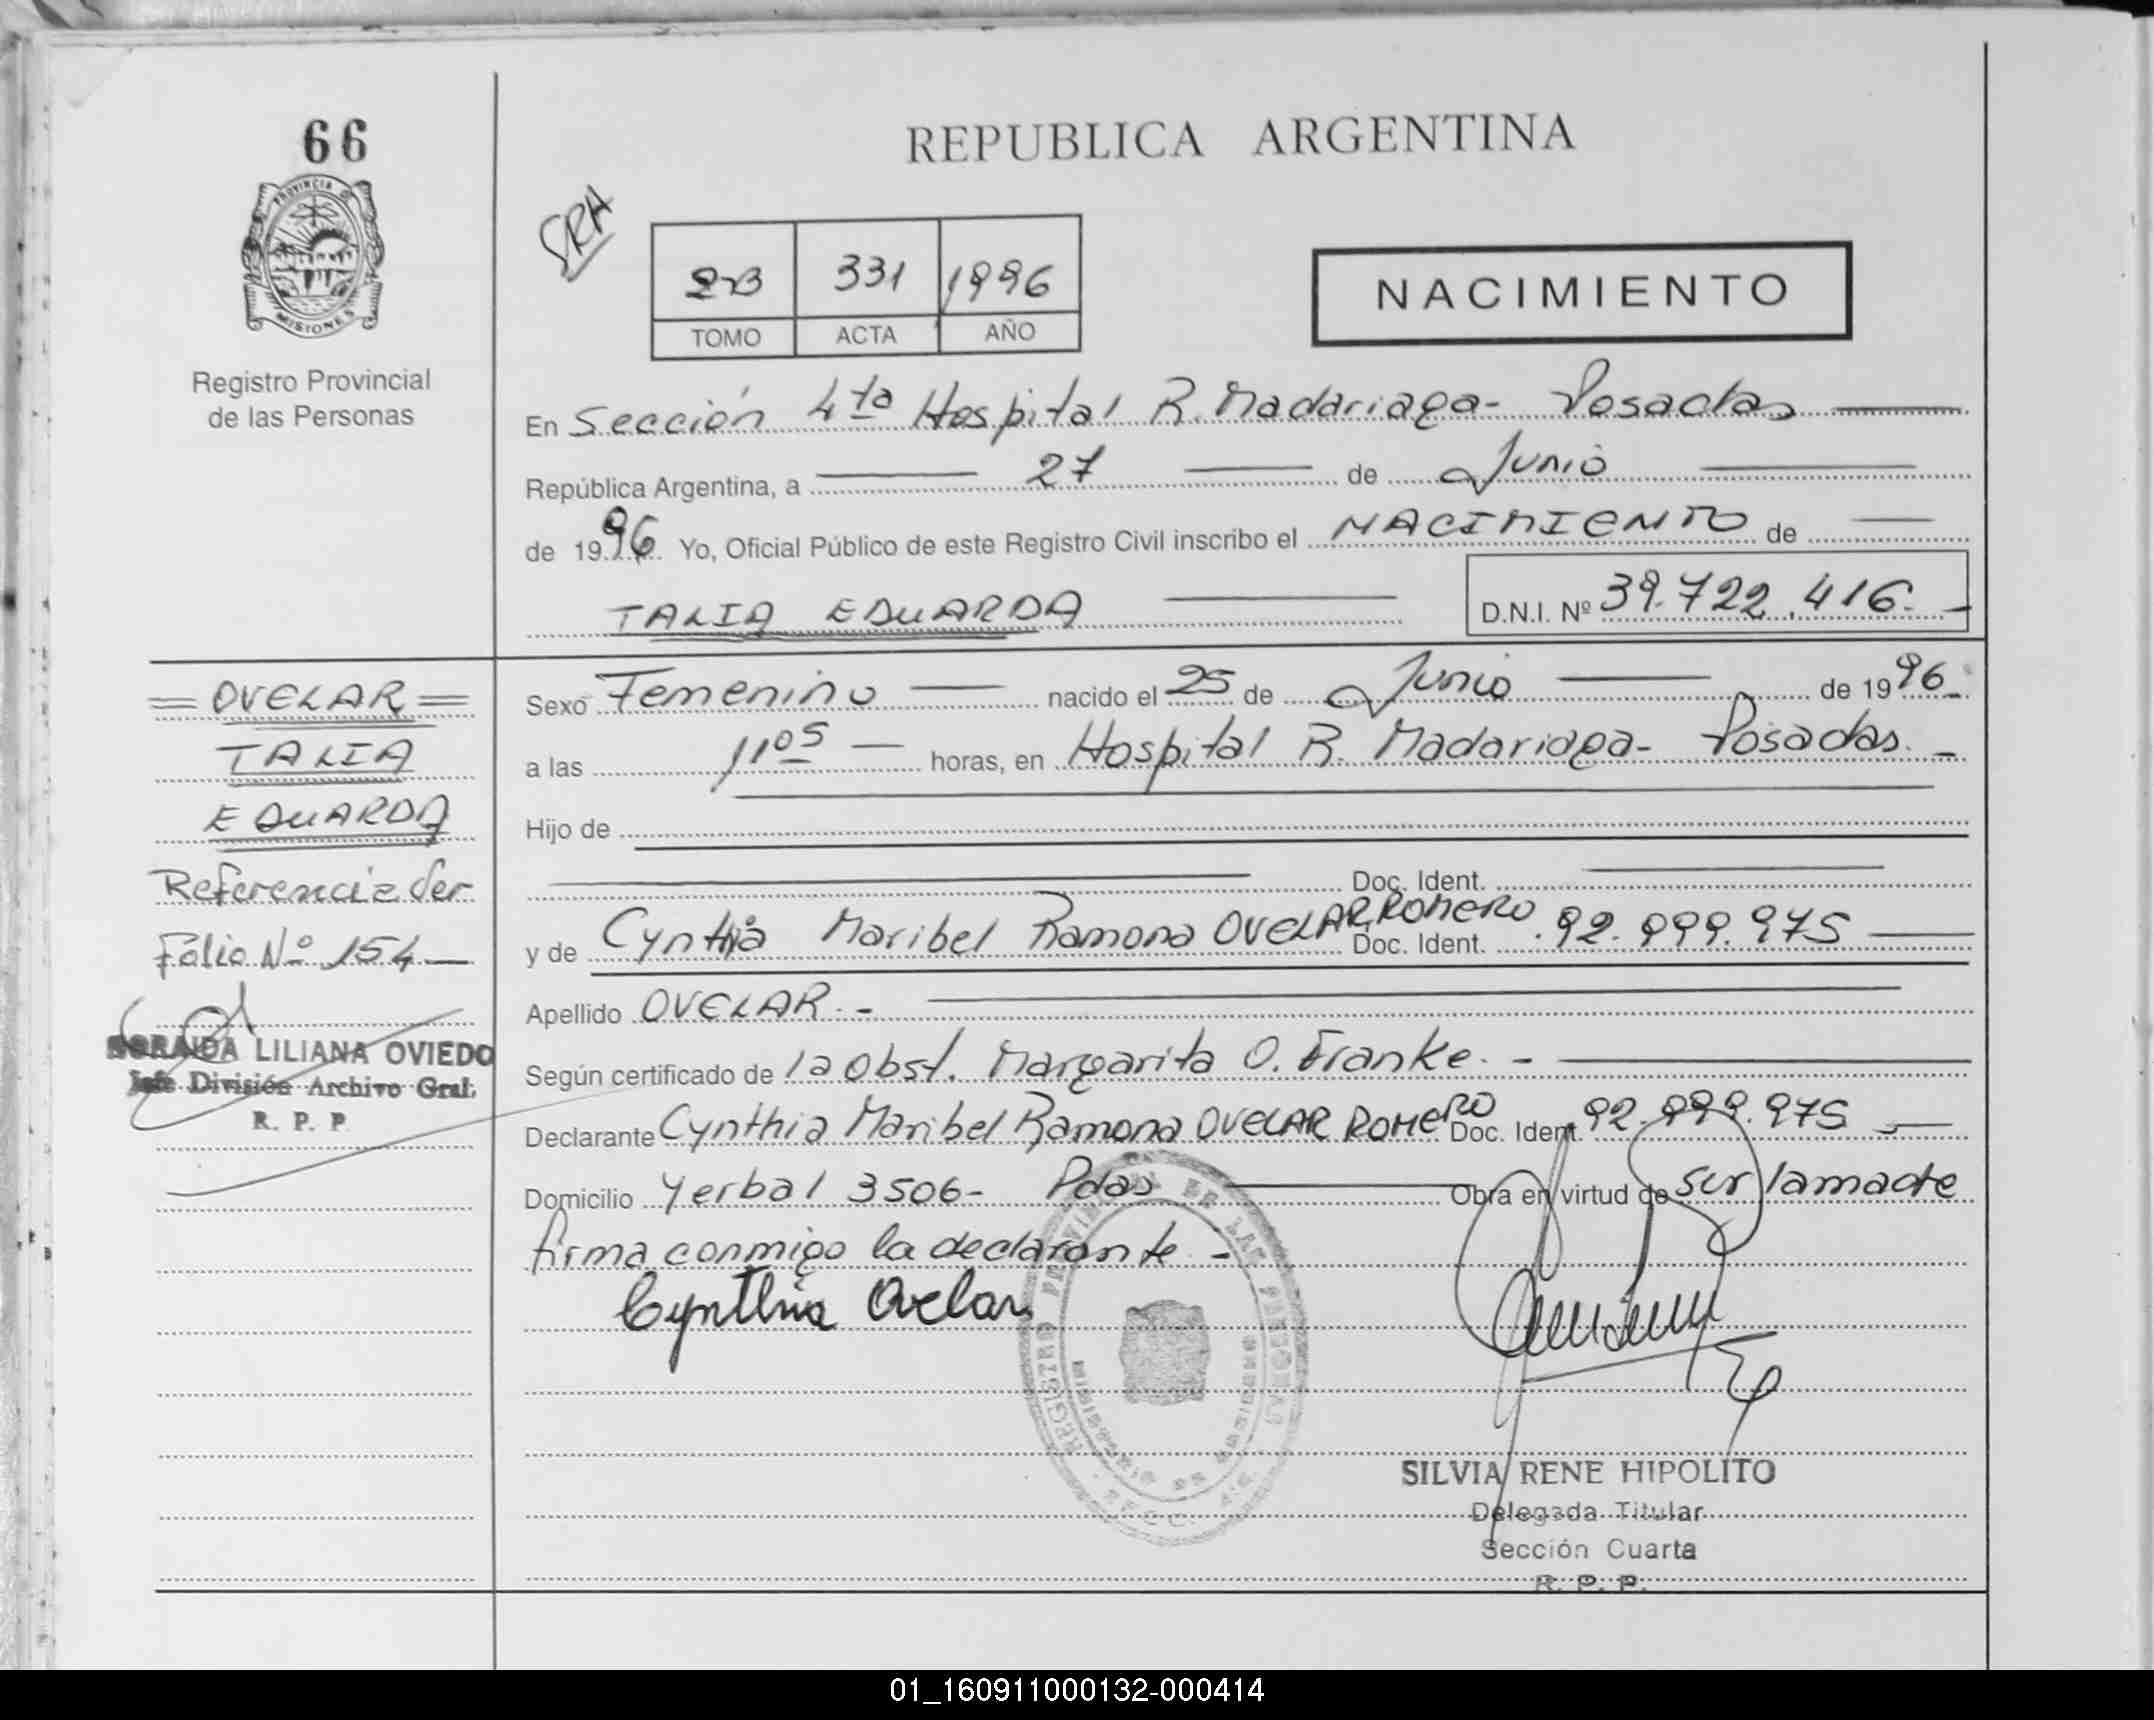 66
PROVINCIA D
MISIONES
Registro Provincial
de las Personas
REPUBLICA ARGENTINA
SRA
2-B 331 1996
TOMO ACTA AÑO
NACIMIENTO
En Sección 4ta Hospital R. Madariaga- Posadas
República Argentina, a 27 de Junio
de 1996 Yo, Oficial Público de este Registro Civil inscribo el NACIMIENTO de
TALIA EDUARDA D.N.I. Nº 39.722.416.-
= OVELAR =
TALIA
EDUARDA
Referencia Ver
Folio Nº 154 —
SORAIDA LILIANA OVIEDO
Jefe División Archivo Gral.
R. P. P
Sexo Femenino nacido el 25 de Junio de 1996.
a las 11 05 horas, en Hospital R. Madariaga- Posadas. -
Hijo de
Doc. Ident.
y de Cynthia Maribel Ramona OVELAR ROMERO Doc. Ident. 92.999.975
Apellido OVELAR.-
Según certificado de la Obst. Margarita O. Franke. -
Declarante Cynthia Maribel Ramona OVELAR ROMERO Doc. Ident. 92.999.975
Domicilio Yerbal 3506- Pdas Obra en virtud de ser la madre
firma conmigo la declarante. -
Cynthia Ovelar
REGISTRO PROVINCIAL DE LAS PERSONAS
SILVIA RENE HIPOLITO
Delegada Titular
Sección Cuarta
R. P. P.
01_160911000132-000414